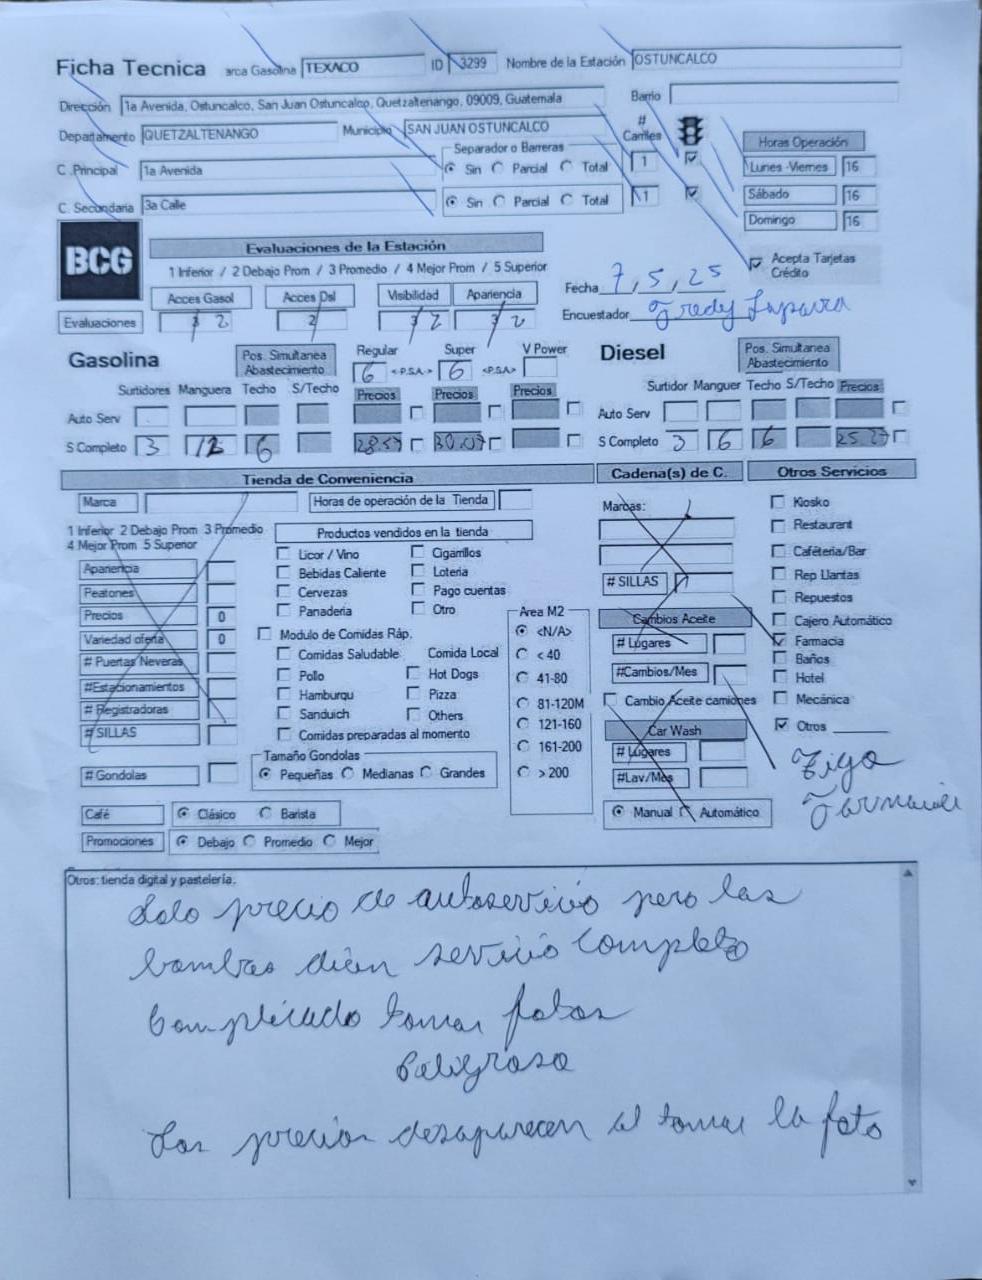 Ficha Tecnica arca Gasolina TEXACO ID 3299 Nombre de la Estación OSTUNCALCO
Dirección 1a Avenida, Ostuncalco, San Juan Ostuncalco, Quetzaltenango, 09009, Guatemala Barrio
Departamento QUETZALTENANGO Municipio SAN JUAN OSTUNCALCO # Carriles
Separador o Barreras
Horas Operación
C .Principal 1a Avenida Sin Parcial Total 1 Lunes -Viernes 16
C. Secundaria 3a Calle Sin Parcial Total 1 Sábado 16
Domingo 16
BCG
Evaluaciones de la Estación
1 Inferior / 2 Debajo Prom / 3 Promedio / 4 Mejor Prom / 5 Superior
Acepta Tarjetas Crédito
Acces Gasol Acces Dsl Visibilidad Apariencia
Fecha 7, 5, 25
Evaluaciones 3 2 2 3 2 3 2
Encuestador Fredy
Gasolina Pos. Simultanea Abastecimiento Regular Super V Power
6 <-P.S.A.-> 6 <-P.S.A->
Diesel Pos. Simultanea Abastecimiento
Surtidores Manguera Techo S/Techo Precios Precios Precios
Surtidor Manguer Techo S/Techo Precios
Auto Serv
Auto Serv
S Completo 3 12 6 28.57 30.07
S Completo 3 6 6 25.27
Tienda de Conveniencia
Marca Horas de operación de la Tienda
1 Inferior 2 Debajo Prom 3 Promedio
4 Mejor Prom 5 Superior
Productos vendidos en la tienda
Apariencia
Peatones
Precios 0
Variedad oferta 0
# Puertas Neveras
#Estacionamientos
# Registradoras
# SILLAS
# Gondolas
Licor / Vino Cigarrillos
Bebidas Caliente Loteria
Cervezas Pago cuentas
Panaderia Otro
Modulo de Comidas Ráp.
Comidas Saludable Comida Local
Pollo Hot Dogs
Hamburgu Pizza
Sanduich Others
Comidas preparadas al momento
Tamaño Gondolas
Pequeñas Medianas Grandes
Area M2
<N/A>
< 40
41-80
81-120M
121-160
161-200
> 200
Café Clásico Barista
Promociones Debajo Promedio Mejor
Cadena(s) de C.
Marcas:
# SILLAS
Cambios Aceite
# Lugares
#Cambios/Mes
Cambio Aceite camiones
Car Wash
# Lugares
#Lav/Mes
Manual Automático
Otros Servicios
Kiosko
Restaurant
Caféteria/Bar
Rep Llantas
Repuestos
Cajero Automático
Farmacia
Baños
Hotel
Mecánica
Otros
Tigo
Otros: tienda digital y pastelería.
Solo precio de autoservicio pero las
bombas dicen servicio completo
Complicado tomar fotos
Peligroso
Los precios desaparecen al tomar la foto